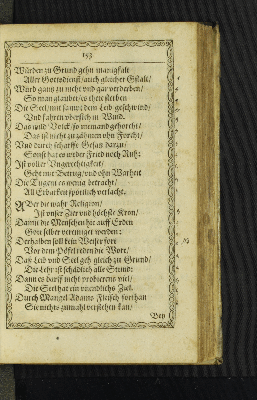 153
Würden zu Grund gehn manigfalt
Aller Gottsdienst/ auch gleicher Gstalt/
Wurd gantz zu nicht und gar verderben/
So man glaubet/ es thete sterben
Die Seel/ mit sampt dem Leib geschwind/
Und fahren übersich in Wind.
Das wild Volck/ so niemand gehorcht/
Das ist nicht zu zähmen ohn Forcht/
Und durch scharpffe Gesatz darzu/
Sonst hat es weder Fried noch Ruh:
Ist voller Ungerechtigkeit/
Geht mit Betrug/ und ohn Warheit
Die Tugent es gentz betracht/
All Erbarkeit spöttlich verlacht.
Aber die wahr Religion/
Ist unser Zier und höchste Kron/
Damit die Menschen hie auff Erden
Gott selber vereiniget werden:
Derhalben soll kein Weiser fort
Vor dem Pöfel reden die Wort/
Daß Leib und Seel geh gleich zu Grund/
Die Lehr ist schädlich alle Stund:
Dann es darff nicht probierens viel/
Die Seel hat ein unendlichs Ziel.
Durch Mangel Adams Fleisch forthan
Sie nichts zumahl verstehen kan/
Bey